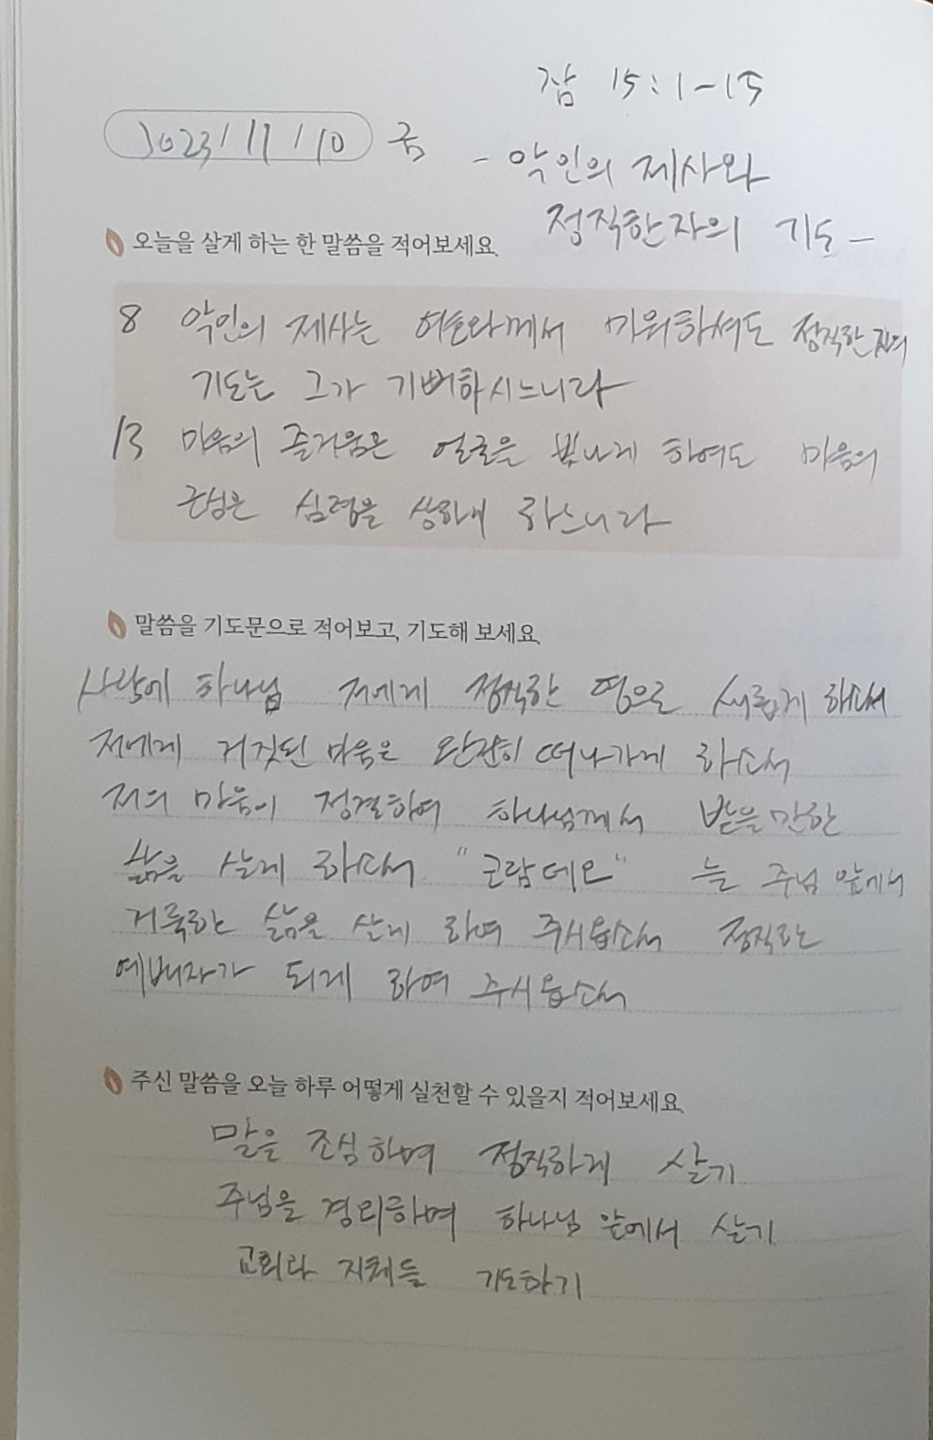 잠 15:1-15
2023/11/10 금
- 악인의 제사와
정직한자의 기도 -
오늘을 살게 하는 한 말씀을 적어보세요.
8 악인의 제사는 여호와께서 미워하셔도 정직한 자의
기도는 그가 기뻐하시느니라
13 마음의 즐거움은 얼굴을 빛나게 하여도 마음의
근심은 심령을 상하게 하느니라
말씀을 기도문으로 적어보고, 기도해 보세요.
사랑에 하나님 저에게 정직한 영으로 새롭게 하소서
저에게 거짓된 마음은 완전히 떠나가게 하소서
저의 마음이 정결하여 하나님께서 받을 만한
삶을 살게 하소서 "코람데오" 늘 주님 앞에서
거룩한 삶을 살게 하여 주시옵소서 정직한
예배자가 되게 하여 주시옵소서
주신 말씀을 오늘 하루 어떻게 실천할 수 있을지 적어보세요.
말을 조심하며 정직하게 살기
주님을 경외하며 하나님 앞에서 살기
교회와 지체들 기도하기